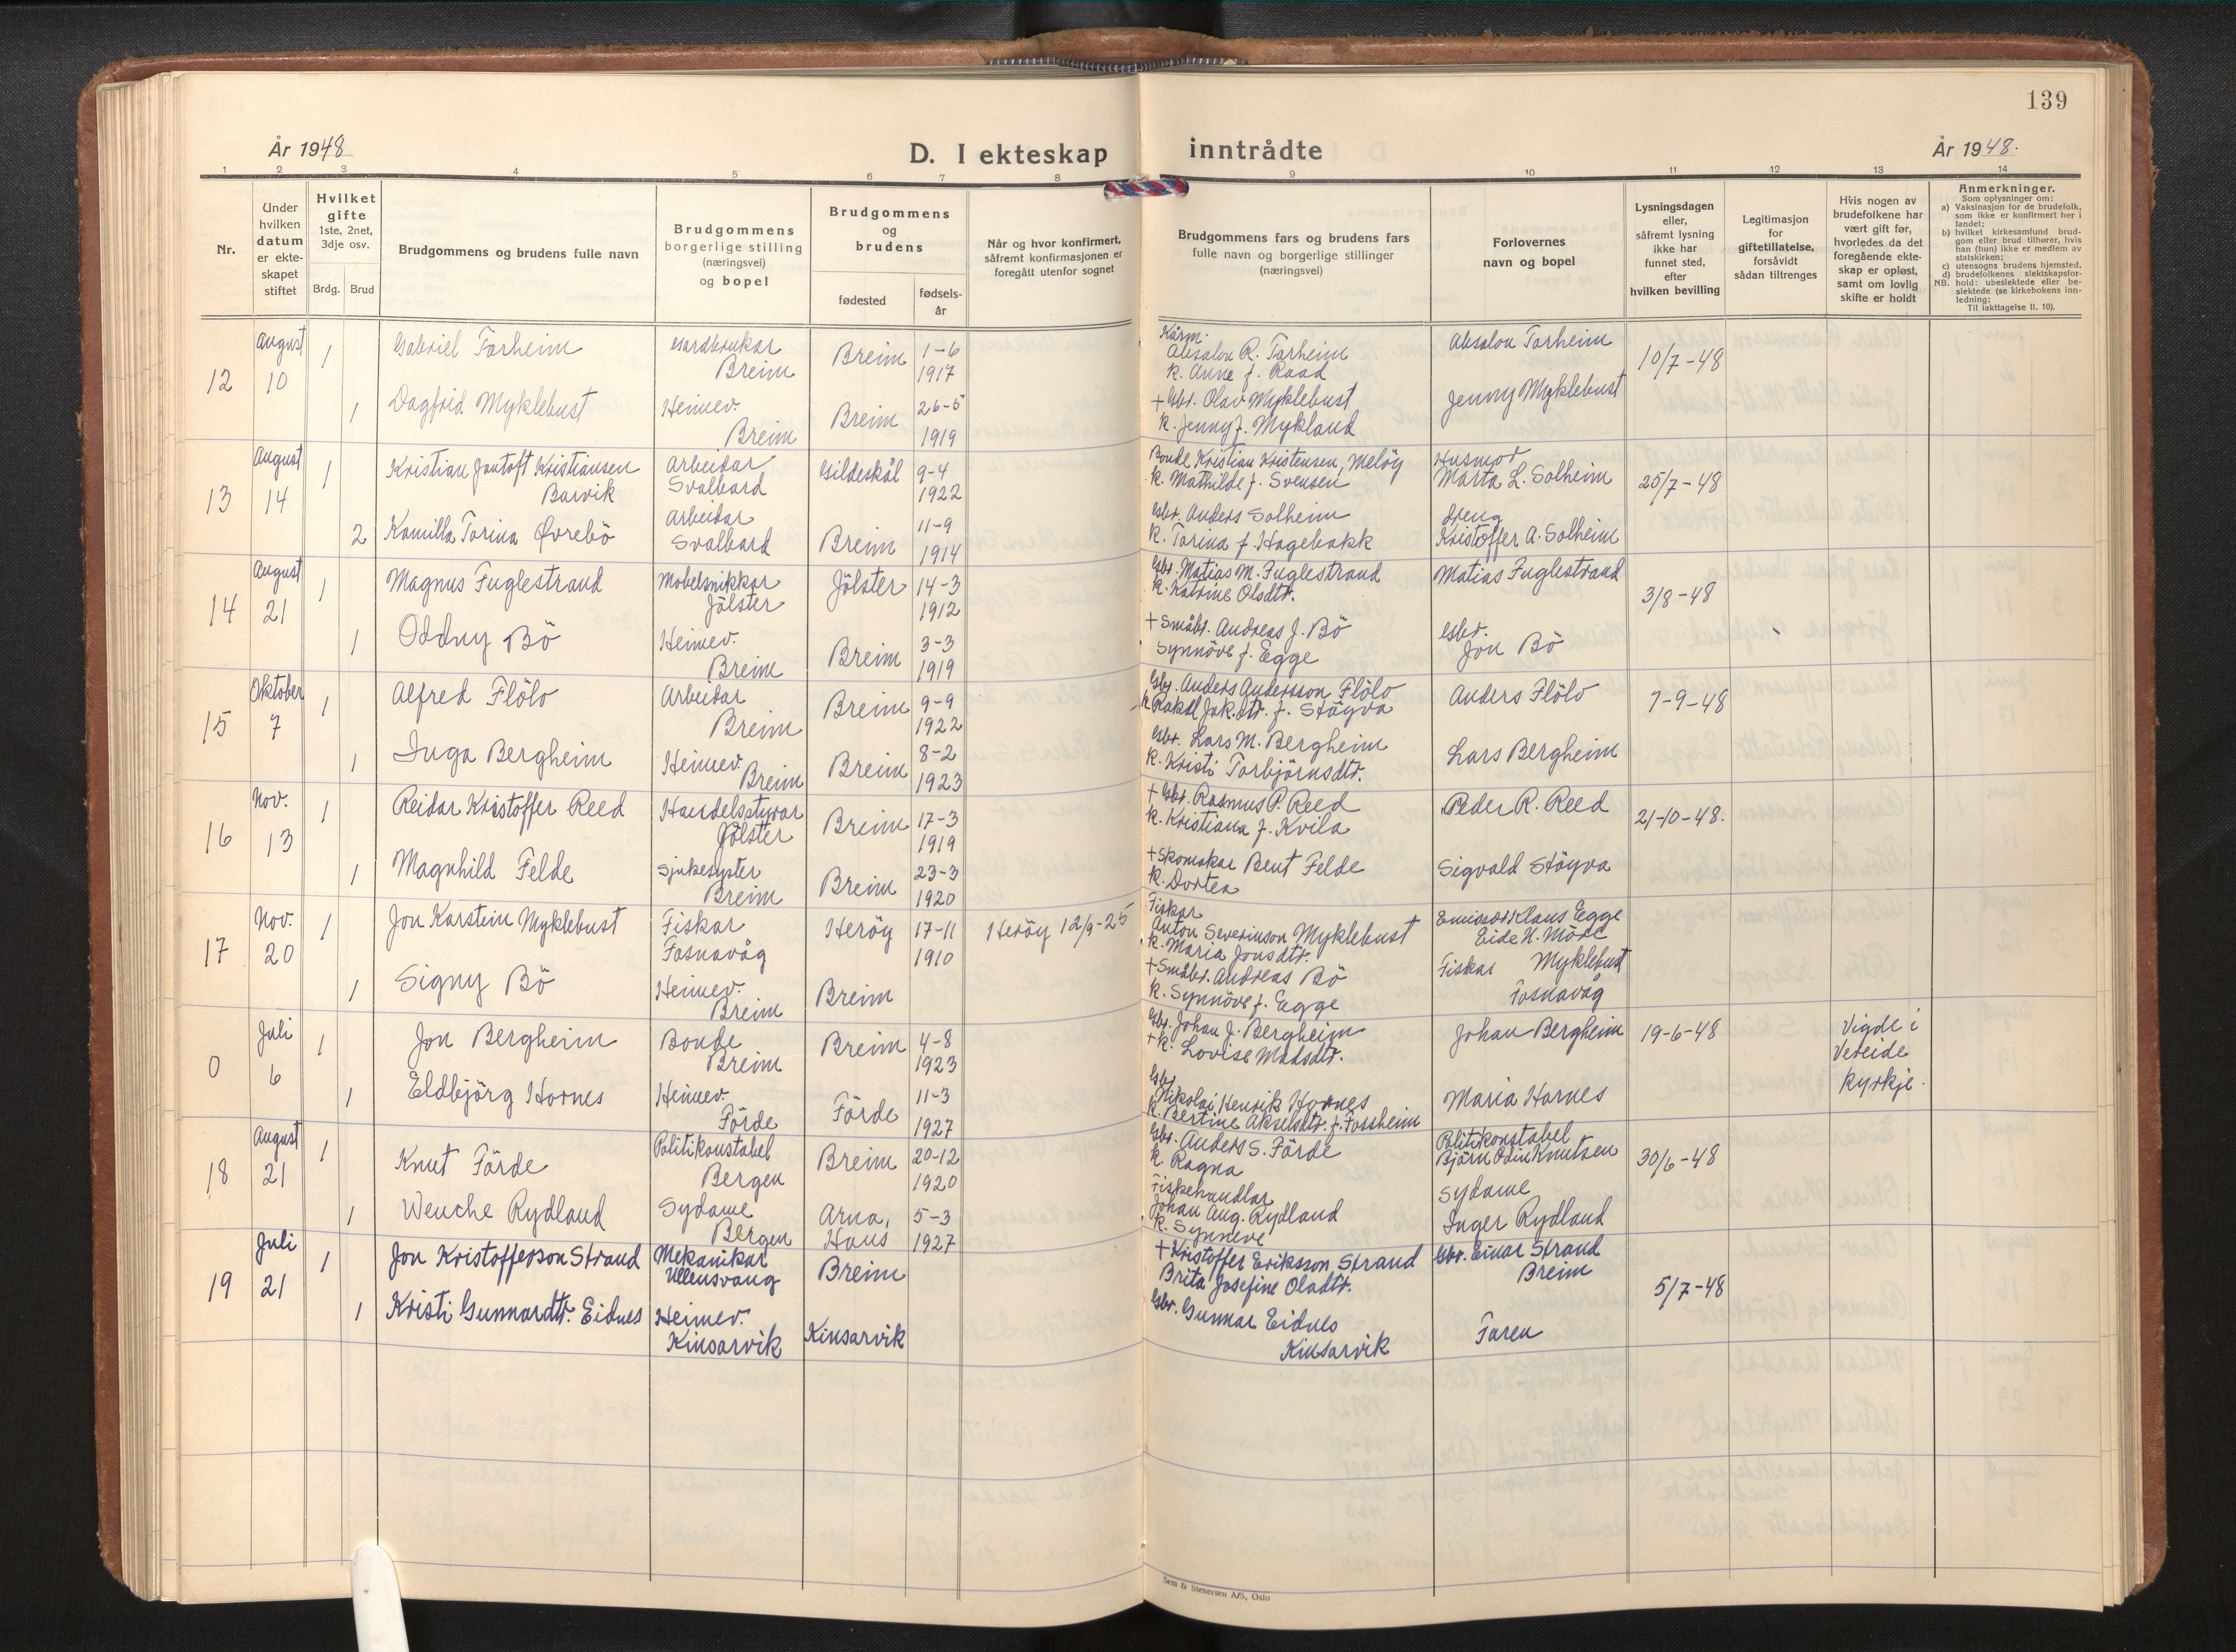 139
År 1948
D. I ekteskap inntrådte
År 1948.
1 2 3 4 5 6 7 8 9 10 11 12 13 14
Nr.
Under
hvilken
datum
er ekte-
skapet
stiftet
Hvilket
gifte
1ste, 2net,
3dje osv.
Brdg. Brud
Brudgommens og brudens fulle navn
Brudgommens
borgerlige stilling
(næringsvei)
og bopel
Brudgommens
og
brudens
fødested
fødsels-
år
Når og hvor konfirmert,
såfremt konfirmasjonen er
foregått utenfor sognet
Brudgommens fars og brudens fars
fulle navn og borgerlige stillinger
(næringsvei)
Forlovernes
navn og bopel
Lysningsdagen
eller,
såfremt lysning
ikke har
funnet sted,
efter
hvilken bevilling
Legitimasjon
for
giftetillatelse,
forsåvidt
sådan tiltrenges
Hvis nogen av
brudefolkene har
vært gift før,
hvorledes da det
foregående ekte-
skap er opløst,
samt om lovlig
skifte er holdt
Anmerkninger.
Som oplysninger om:
a) Vaksinasjon for de brudefolk,
som ikke er konfirmert her i
landet;
b) hvilket kirkesamfund brud-
gom eller brud tilhører, hvis
han (hun) ikke er medlem av
statskirken;
c) utensogns brudens hjemsted.
d) brudefolkenes slektskapsfor-
hold: ubeslektede eller be-
slektede (se kirkebokens inn-
ledning;
NB. Til iakttagelse II. 10).
12
August
10
1
Gabriel Torheim
Gardbrukar
Breim
Breim
1-6
1917
Kårm.
Absalon R. Torheim
k. Anne f. Raad
Absalon Torheim
10/7-48
1
Dagfrid Myklebust
Heimev.
Breim
Breim
26-5
1919
+ Gbr. Olav Myklebust
k. Jenny f. Mykland
Jenny Myklebust
13
August
14
1
Kristian Jontoft Kristiansen
Barvik
Arbeidar
Svalbard
Gildeskål
9-4
1922
Bonde Kristian Kristensen, Meløy
k. Mathilde f. Svensen
Husmor
Marta L. Solheim
25/7-48
2
Kamilla Torina Øvrebö
Arbeidar
Svalbard
Breim
11-9
1914
Gbr. Anders Solheim
k. Torina f. Hagebakk
dreng
Kristoffer A. Solheim
14
August
21
1
Magnus Fuglestrand
Møbelsnikkar
Jölster
Jölster
14-3
1912
Gbr. Matias M. Fuglestrand
k. Katrine Olsdtr.
Matias Fuglestrand
3/8-48
1
Oddny Bö
Heimev.
Breim
Breim
3-3
1919
+ Småbr. Andreas J. Bö
Synnöve f. Egge
Gbr.
Jon Bö
15
Oktober
7
1
Alfred Flölo
Arbeidar
Breim
Breim
9-9
1922
Gbr. Anders Andersson Flölo
k. Rakel Jak.dtr. f. Støyva
Anders Flölo
7-9-48
1
Inga Bergheim
Heimev.
Breim
Breim
8-2
1923
Gbr. Lars M. Bergheim
k. Kristi Torbjörnsdtr.
Lars Bergheim
16
Nov.
13
1
Reidar Kristoffer Reed
Handelsstyrar
Jölster
Breim
17-3
1919
+ Gbr. Rasmus P. Reed
k. Kristiana f. Kvila
Peder R. Reed
21-10-48.
1
Magnhild Felde
Sjukesyster
Breim
Breim
23-3
1920
+ Skomakar Bent Felde
k. Dortea
Sigvald Støyva
17
Nov.
20
1
Jon Karstein Myklebust
Fiskar
Fosnavåg
Herøy
17-11
1910
Herøy 12/9-25
Fiskar
Anton Severinson Myklebust
k. Maria Jonsdtr.
Emissær Klaus Egge
Eide N. Möre
1
Signy Bö
Heimev.
Breim
Breim
+ Småbr. Andreas Bö
k. Synnöve f. Egge
Fiskar Myklebust
Fosnavåg
0
Juli
6
1
Jon Bergheim
Bonde
Breim
Breim
4-8
1923
Gbr. Johan J. Bergheim
+ k. Lovise Madsdtr.
Johan Bergheim
19-6-48
Vigde i
Vereide
Kyrkje.
1
Eldbjörg Hornes
Heimev.
Förde
Förde
11-3
1927
Gbr.
Nikolai Henrik Hornes
k. Bertine Akselsdtr. f. Fossheim
Maria Hornes
18
August
21
1
Knut Förde
Politikonstabel
Bergen
Breim
20-12
1920
Gbr. Anders S. Förde
k. Ragna
Politikonstabel
Björn Odin Knutsen
30/6-48
1
Wenche Rydland
Sydame
Bergen
Arna,
Haus
5-3
1927
Fiskehandlar
Johan Aug. Rydland
k. Synneve
Sydame
Inger Rydland
19
Juli
21
1
Jon Kristofferson Strand
Mekanikar
Ullensvang
Breim
+ Kristoffer Eriksson Strand
Brita Josefine Oladtr.
Gbr. Einar Strand
Breim
5/7-48
1
Kristi Gunnardtr. Eidnes
Heimev.
Kinsarvik
Kinsarvik
Gbr. Gunnar Eidnes
Kinsarvik
Faren
Sem & Stenersen A/S, Oslo